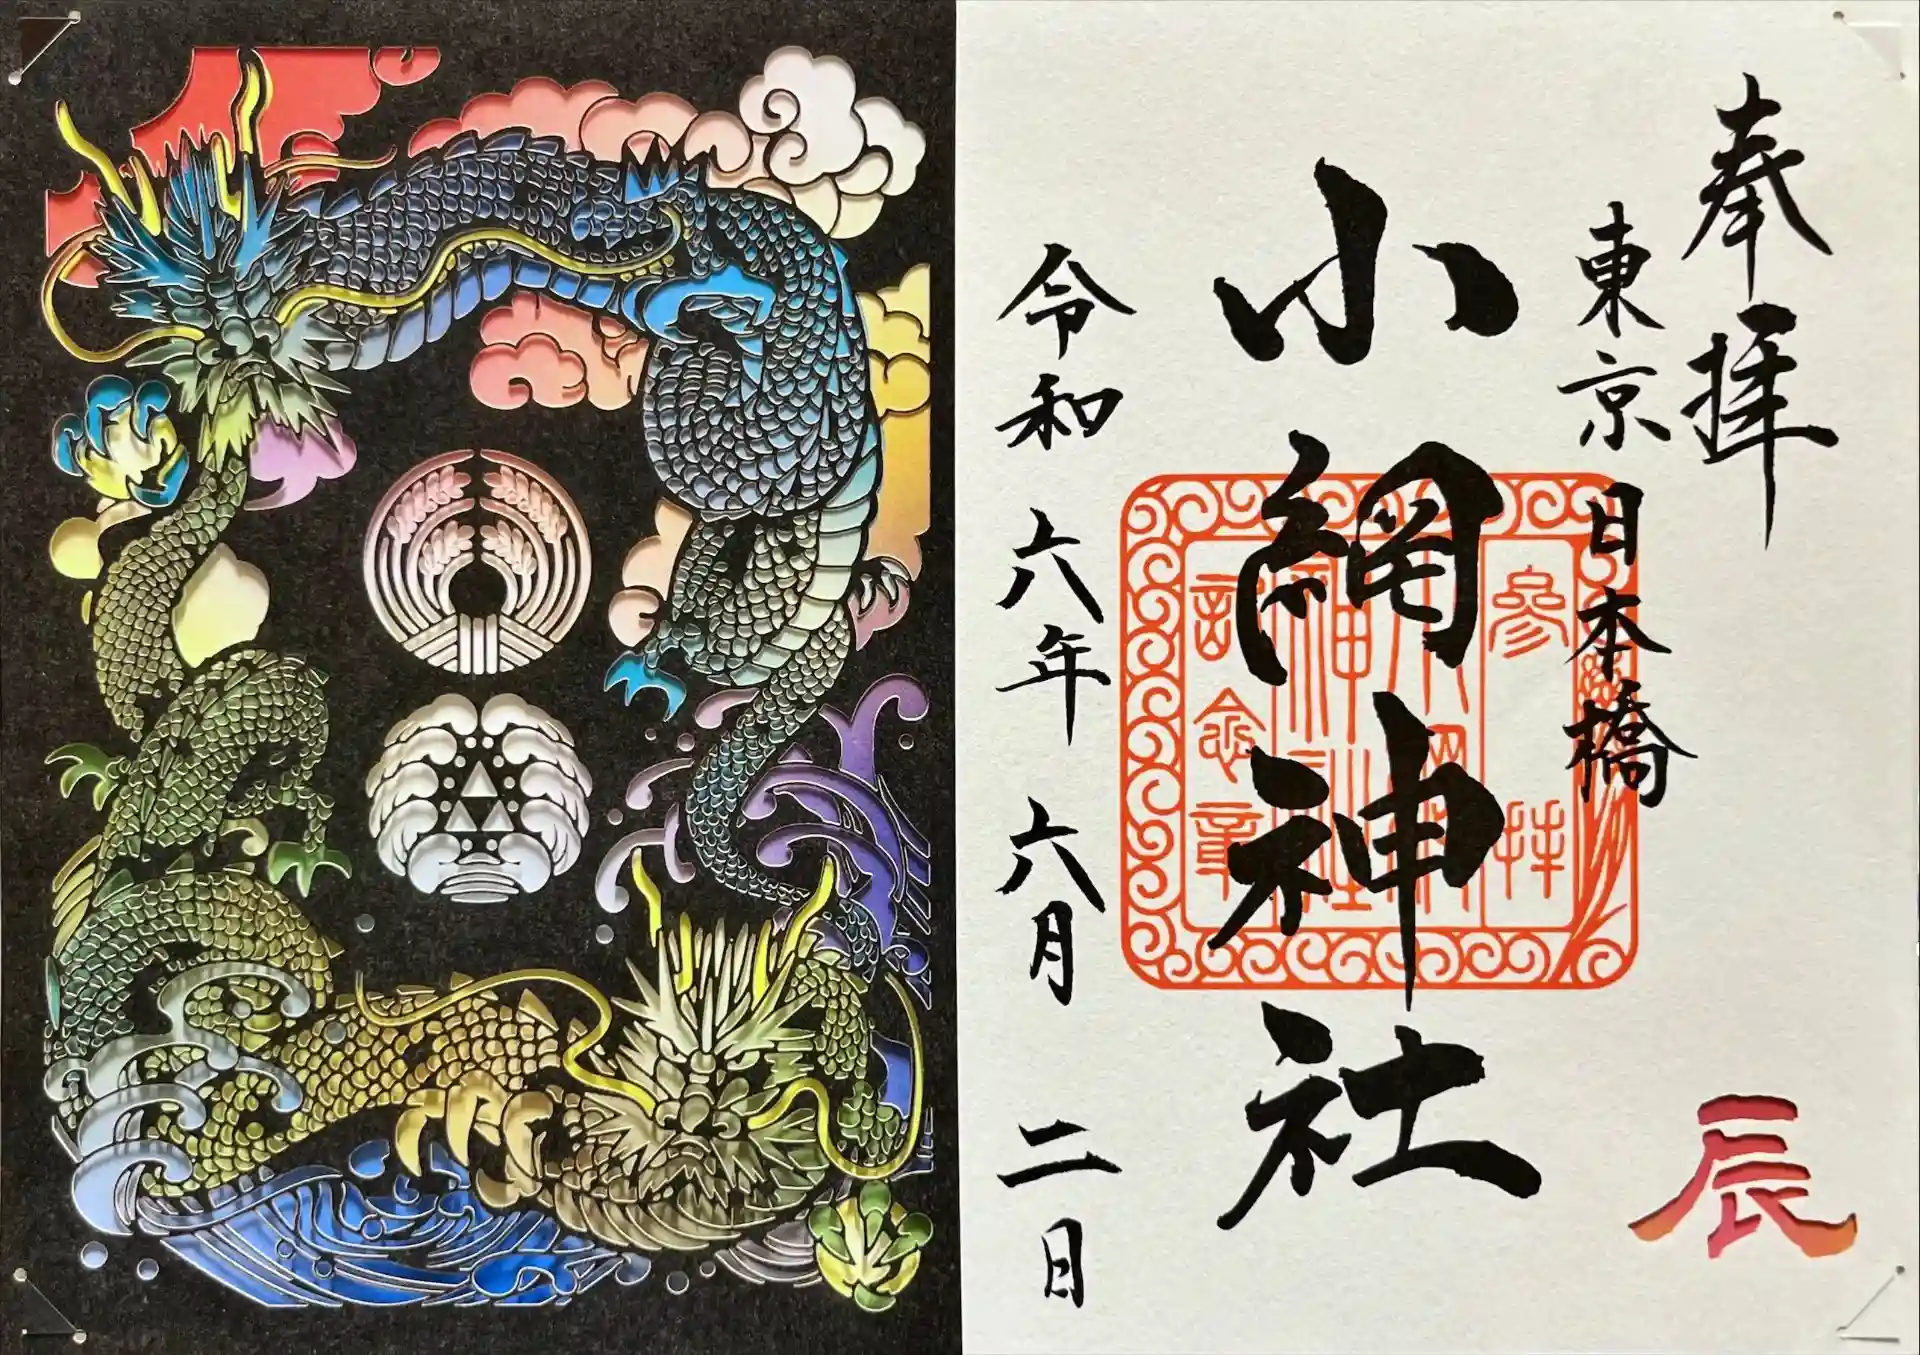 奉拝
東京日本橋
小網神社
参拝
小網
神社
記念章
令和六年六月二日
辰